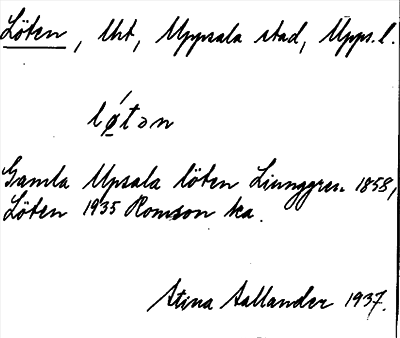 Löten, Urt, Uppsala stad, Upps. l.
lǿtən
Gamla Upsala löten Ljunggren 1858,
Löten 1935 Romson ka.
Stina Hallander 1937.